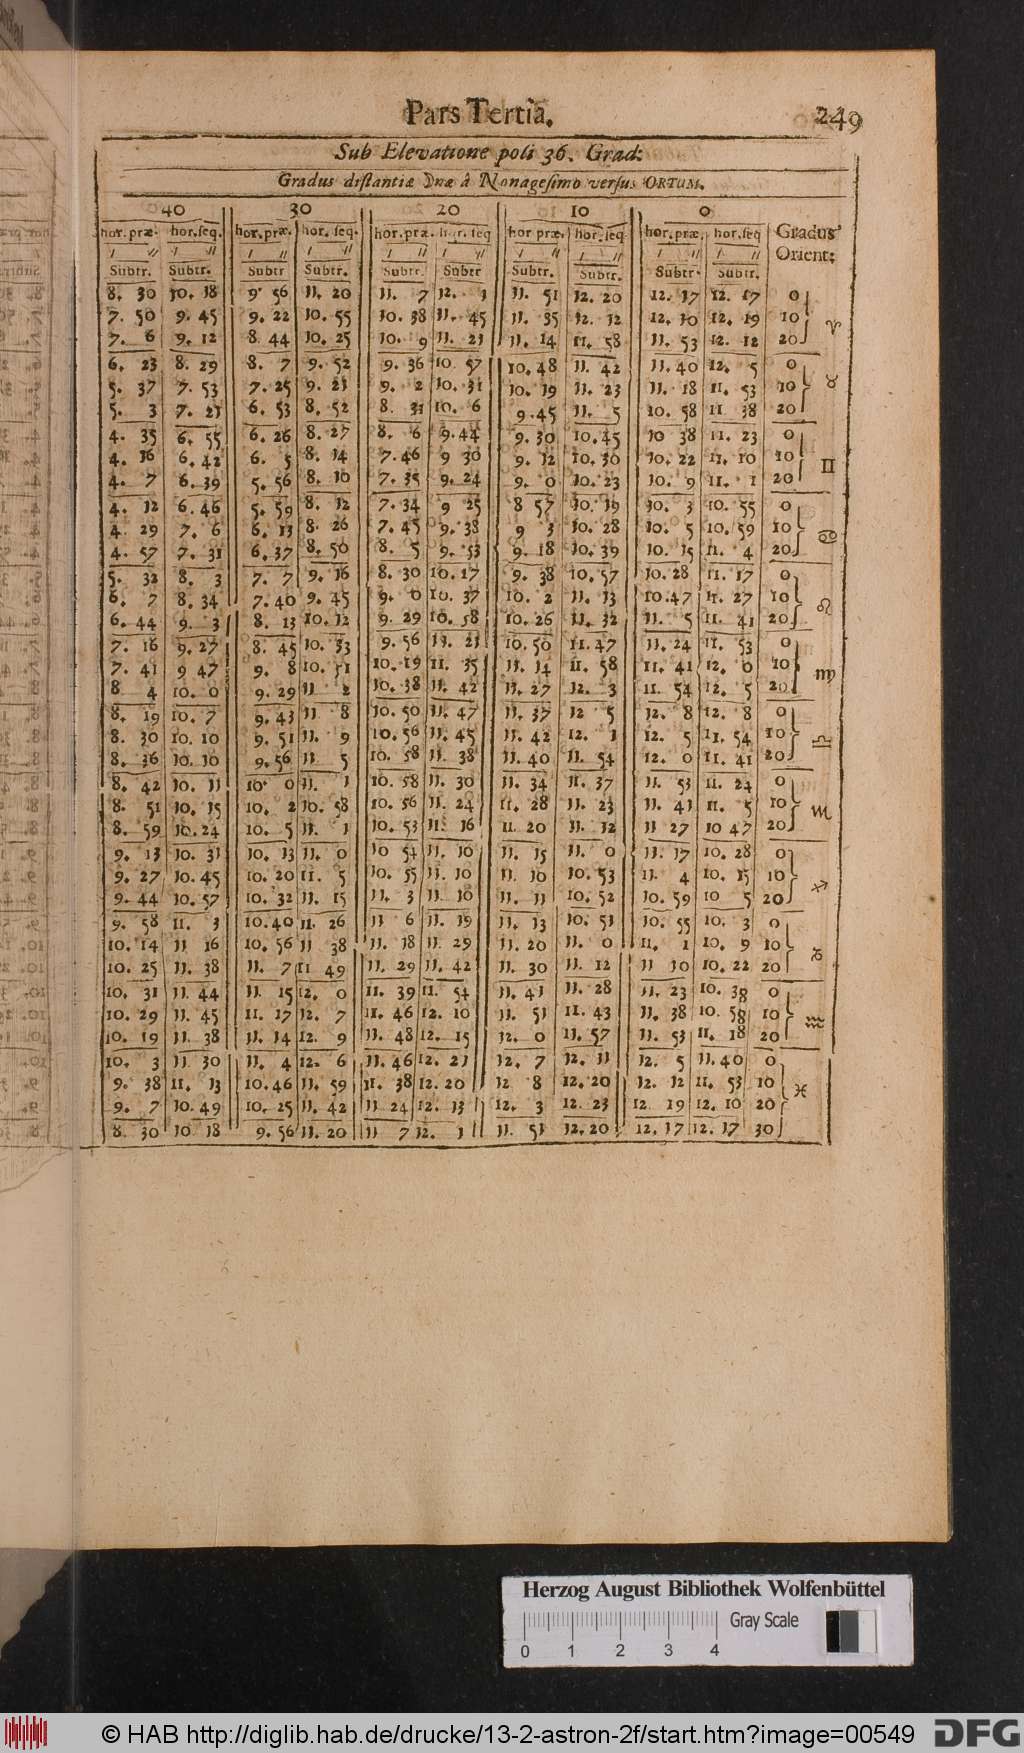 Pars Tertia. 249
Sub Elevatione poli 36. Grad:
Gradus distantiæ Dnæ â Nonagesimo versus ORTUM.
40 30 20 10 0
hor. præ. hor. seq. hor. præ. hor. seq. hor. præ. hor. seq hor præ. hor. seq hor. præ. hor. seq Gradus
′ ″ ′ ″ ′ ″ ′ ″ ′ ″ ′ ″ ′ ″ ′ ″ ′ ″ ′ ″ Orient:
Subtr. Subtr. Subtr Subtr. Subtr. Subtr Subtr. Subtr. Subtr. Subtr.
8. 30 10. 18 9. 56 11. 20 11. 7 12. 1 11. 51 12. 20 12. 17 12. 17 0
7. 50 9. 45 9. 22 10. 55 10. 38 11. 45 11. 35 12. 12 12. 10 12. 19 10 ♈
7. 6 9. 12 8. 44 10. 25 10. 9 11. 21 11. 14 11. 58 11. 53 12. 12 20
6. 23 8. 29 8. 7 9. 52 9. 36 10. 57 10. 48 11. 42 11. 40 12. 5 0
5. 37 7. 53 7. 25 9. 21 9. 2 10. 31 10. 19 11. 23 11. 18 11. 53 10 ♉
5. 3 7. 21 6. 53 8. 52 8. 31 10. 6 9. 45 11. 5 10. 58 11 38 20
4. 35 6. 55 6. 26 8. 27 8. 6 9. 44 9. 30 10. 45 10 38 11. 23 0
4. 16 6. 42 6. 5 8. 14 7. 46 9 30 9. 12 10. 30 10. 22 11. 10 10 ♊
4. 7 6. 39 5. 56 8. 10 7. 35 9. 24 9. 0 10. 23 10. 9 11. 1 20
4. 12 6. 46 5. 59 8. 12 7. 34 9 25 8 57 10. 19 10. 3 10. 55 0
4. 29 7. 6 6. 13 8. 26 7. 45 9. 38 9 3 10. 28 10. 5 10. 59 10 ♋
4. 57 7. 31 6. 37 8. 50 8. 5 9. 53 9. 18 10. 39 10. 15 11. 4 20
5. 32 8. 3 7. 7 9. 16 8. 30 10. 17 9. 38 10. 57 10. 28 11. 17 0
6. 7 8. 34 7. 40 9. 45 9. 0 10. 37 10. 2 11. 13 10. 47 11. 27 10 ♌
6. 44 9. 3 8. 13 10. 12 9. 29 10. 58 10. 26 11. 32 11. 5 11. 41 20
7. 16 9. 27 8. 45 10. 33 9. 56 11. 21 10. 50 11. 47 11. 24 11. 53 0
7. 41 9 47 9. 8 10. 51 10. 19 11. 35 11. 14 11. 58 11. 41 12. 0 10 ♍
8. 4 10. 0 9. 29 11 2 10. 38 11. 42 11. 27 12. 3 11. 54 12. 5 20
8. 19 10. 7 9. 43 11 8 10. 50 11. 47 11. 37 12 5 12. 8 12. 8 0
8. 30 10. 10 9. 51 11. 9 10. 56 11. 45 11. 42 12. 1 12. 5 11. 54 10 ♎
8. 36 10. 10 9. 56 11. 5 10. 58 11. 38 11. 40 11. 54 12. 0 11. 41 20
8. 42 10. 11 10. 0 11. 1 10. 58 11. 30 11. 34 11. 37 11. 53 11. 24 0
8. 51 10. 15 10. 2 10. 58 10. 56 11. 24 11. 28 11. 23 11. 41 11. 5 10 ♏
8. 59 10. 24 10. 5 11. 1 10. 53 11. 16 11. 20 11. 12 11 27 10 47 20
9. 13 10. 31 10. 13 11. 0 10 54 11. 10 11. 15 11. 0 11. 17 10. 28 0
9. 27 10. 45 10. 20 11. 5 10. 55 11. 10 11. 10 10. 53 11. 4 10. 15 10 ♐
9. 44 10. 57 10. 32 11. 15 11. 3 11. 10 11. 11 10. 52 10. 59 10 5 20
9. 58 11. 3 10. 40 11. 26 11 6 11. 19 11. 13 10. 51 10. 55 10. 3 0
10. 14 11 16 10. 56 11 38 11. 18 11. 29 11. 20 11. 0 11. 1 10. 9 10 ♑
10. 25 11. 38 11. 7 11 49 11. 29 11. 42 11. 30 11. 12 11 10 10. 22 20
10. 31 11. 44 11. 15 12. 0 11. 39 11. 54 11. 41 11. 28 11. 23 10. 38 0
10. 29 11. 45 11. 17 12. 7 11. 46 12. 10 11. 51 11. 43 11. 38 10. 58 10 ♒
10. 19 11. 38 11. 14 12. 9 11. 48 12. 15 12. 0 11. 57 11. 53 11. 18 20
10. 3 11 30 11. 4 12. 6 11. 46 12. 21 12. 7 12. 11 12. 5 11. 40 0
9. 38 11. 13 10. 46 11. 59 11. 38 12. 20 12 8 12. 20 12. 12 11. 53 10 ♓
9. 7 10. 49 10. 25 11. 42 11 24 12. 13 12. 3 12. 23 12 19 12. 10 20
8. 30 10 18 9. 56 11. 20 11 7 12. 1 11. 51 12. 20 12. 17 12. 17 30
Herzog August Bibliothek Wolfenbüttel
Gray Scale
0 1 2 3 4
© HAB http://diglib.hab.de/drucke/13-2-astron-2f/start.htm?image=00549 DFG